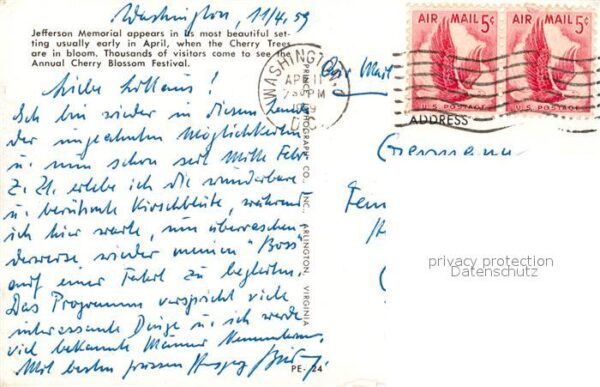 Washington, 11/4. 59
Jefferson Memorial appears in its most beautiful set-
ting usually early in April, when the Cherry Trees
are in bloom. Thousands of visitors come to see the
Annual Cherry Blossom Festival.
Liebe
Ich bin wieder in diesem Lande
der ungeahnten Möglichkeiten
u. nun schon seit Mitte Febr.
Z. Zt. erlebe ich die wunderbare
u. berühmte Kirschblüte, während
ich hier warte, um überraschen-
derweise wieder meinen "Boss"
auf einer Fahrt zu begleiten.
Das Programm verspricht viele
interessante Dinge u. ich werde
viel bekannte Männer
Mit besten Grüssen
PRINCE LITHOGRAPH CO., INC., ARLINGTON, VIRGINIA
PE-24
WASHINGTON
APR 11
PM
AIR MAIL 5¢
U.S. POSTAGE
AIR MAIL 5¢
U.S. POSTAGE
Air Mail
ADDRESS
Germany
privacy protection
Datenschutz